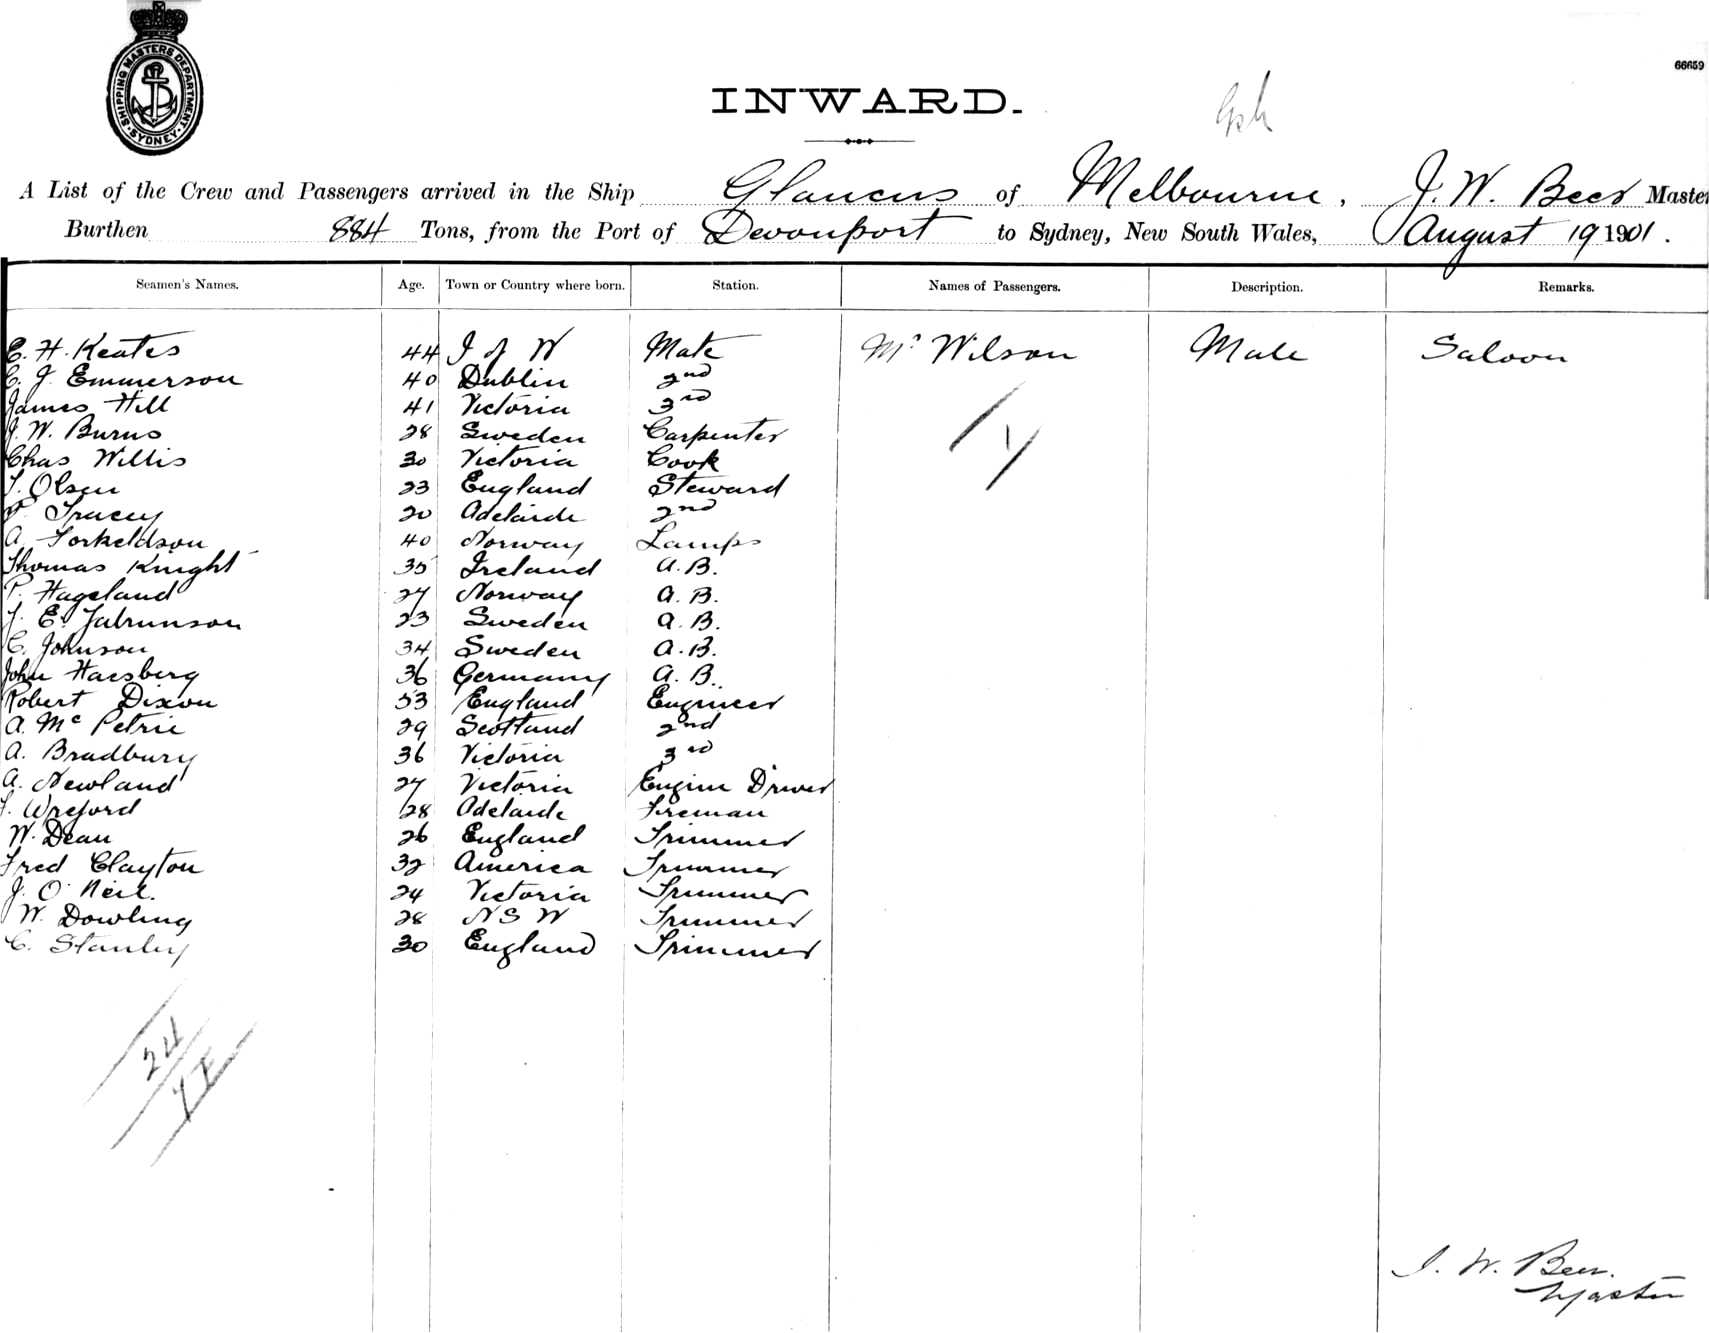 SHIPPING MASTERS DEPARTMENT
SYDNEY
66659
INWARD.
A List of the Crew and Passengers arrived in the Ship Glaucus of Melbourne, J. W. Beer Master
Burthen 884 Tons, from the Port of Devonport to Sydney, New South Wales, August 19 1901.
Seamen's Names. Age. Town or Country where born. Station. Names of Passengers. Description. Remarks.
E. H. Keates 44 I of W Mate Mr Wilson Male Saloon
C. J. Emmerson 40 Dublin 2nd
James Hill 41 Victoria 3rd
J. W. Burns 28 Sweden Carpenter
Chas Willis 30 Victoria Cook
Olsen 23 England Steward
Tracey 20 Adelaide 2nd
A. Torkeldson 40 Norway Lamps
Thomas Knight 35 Ireland A.B.
P. Hageland 27 Norway A.B.
J. E. 23 Sweden A.B.
C. Johnson 34 Sweden A.B.
John Harsberg 36 Germany A.B.
Robert Dixon 53 England Engineer
A. Mc Petrie 29 Scotland 2nd
A. Bradbury 36 Victoria 3rd
A. Newland 27 Victoria Engine Driver
Wreford 28 Adelaide Fireman
W. Dean 26 England Trimmer
Fred Clayton 32 America Trimmer
J. O'Neil. 24 Victoria Trimmer
W. Dowling 28 N S W Trimmer
C. Stanley 30 England Trimmer
1
24
J. W. Beer.
Master